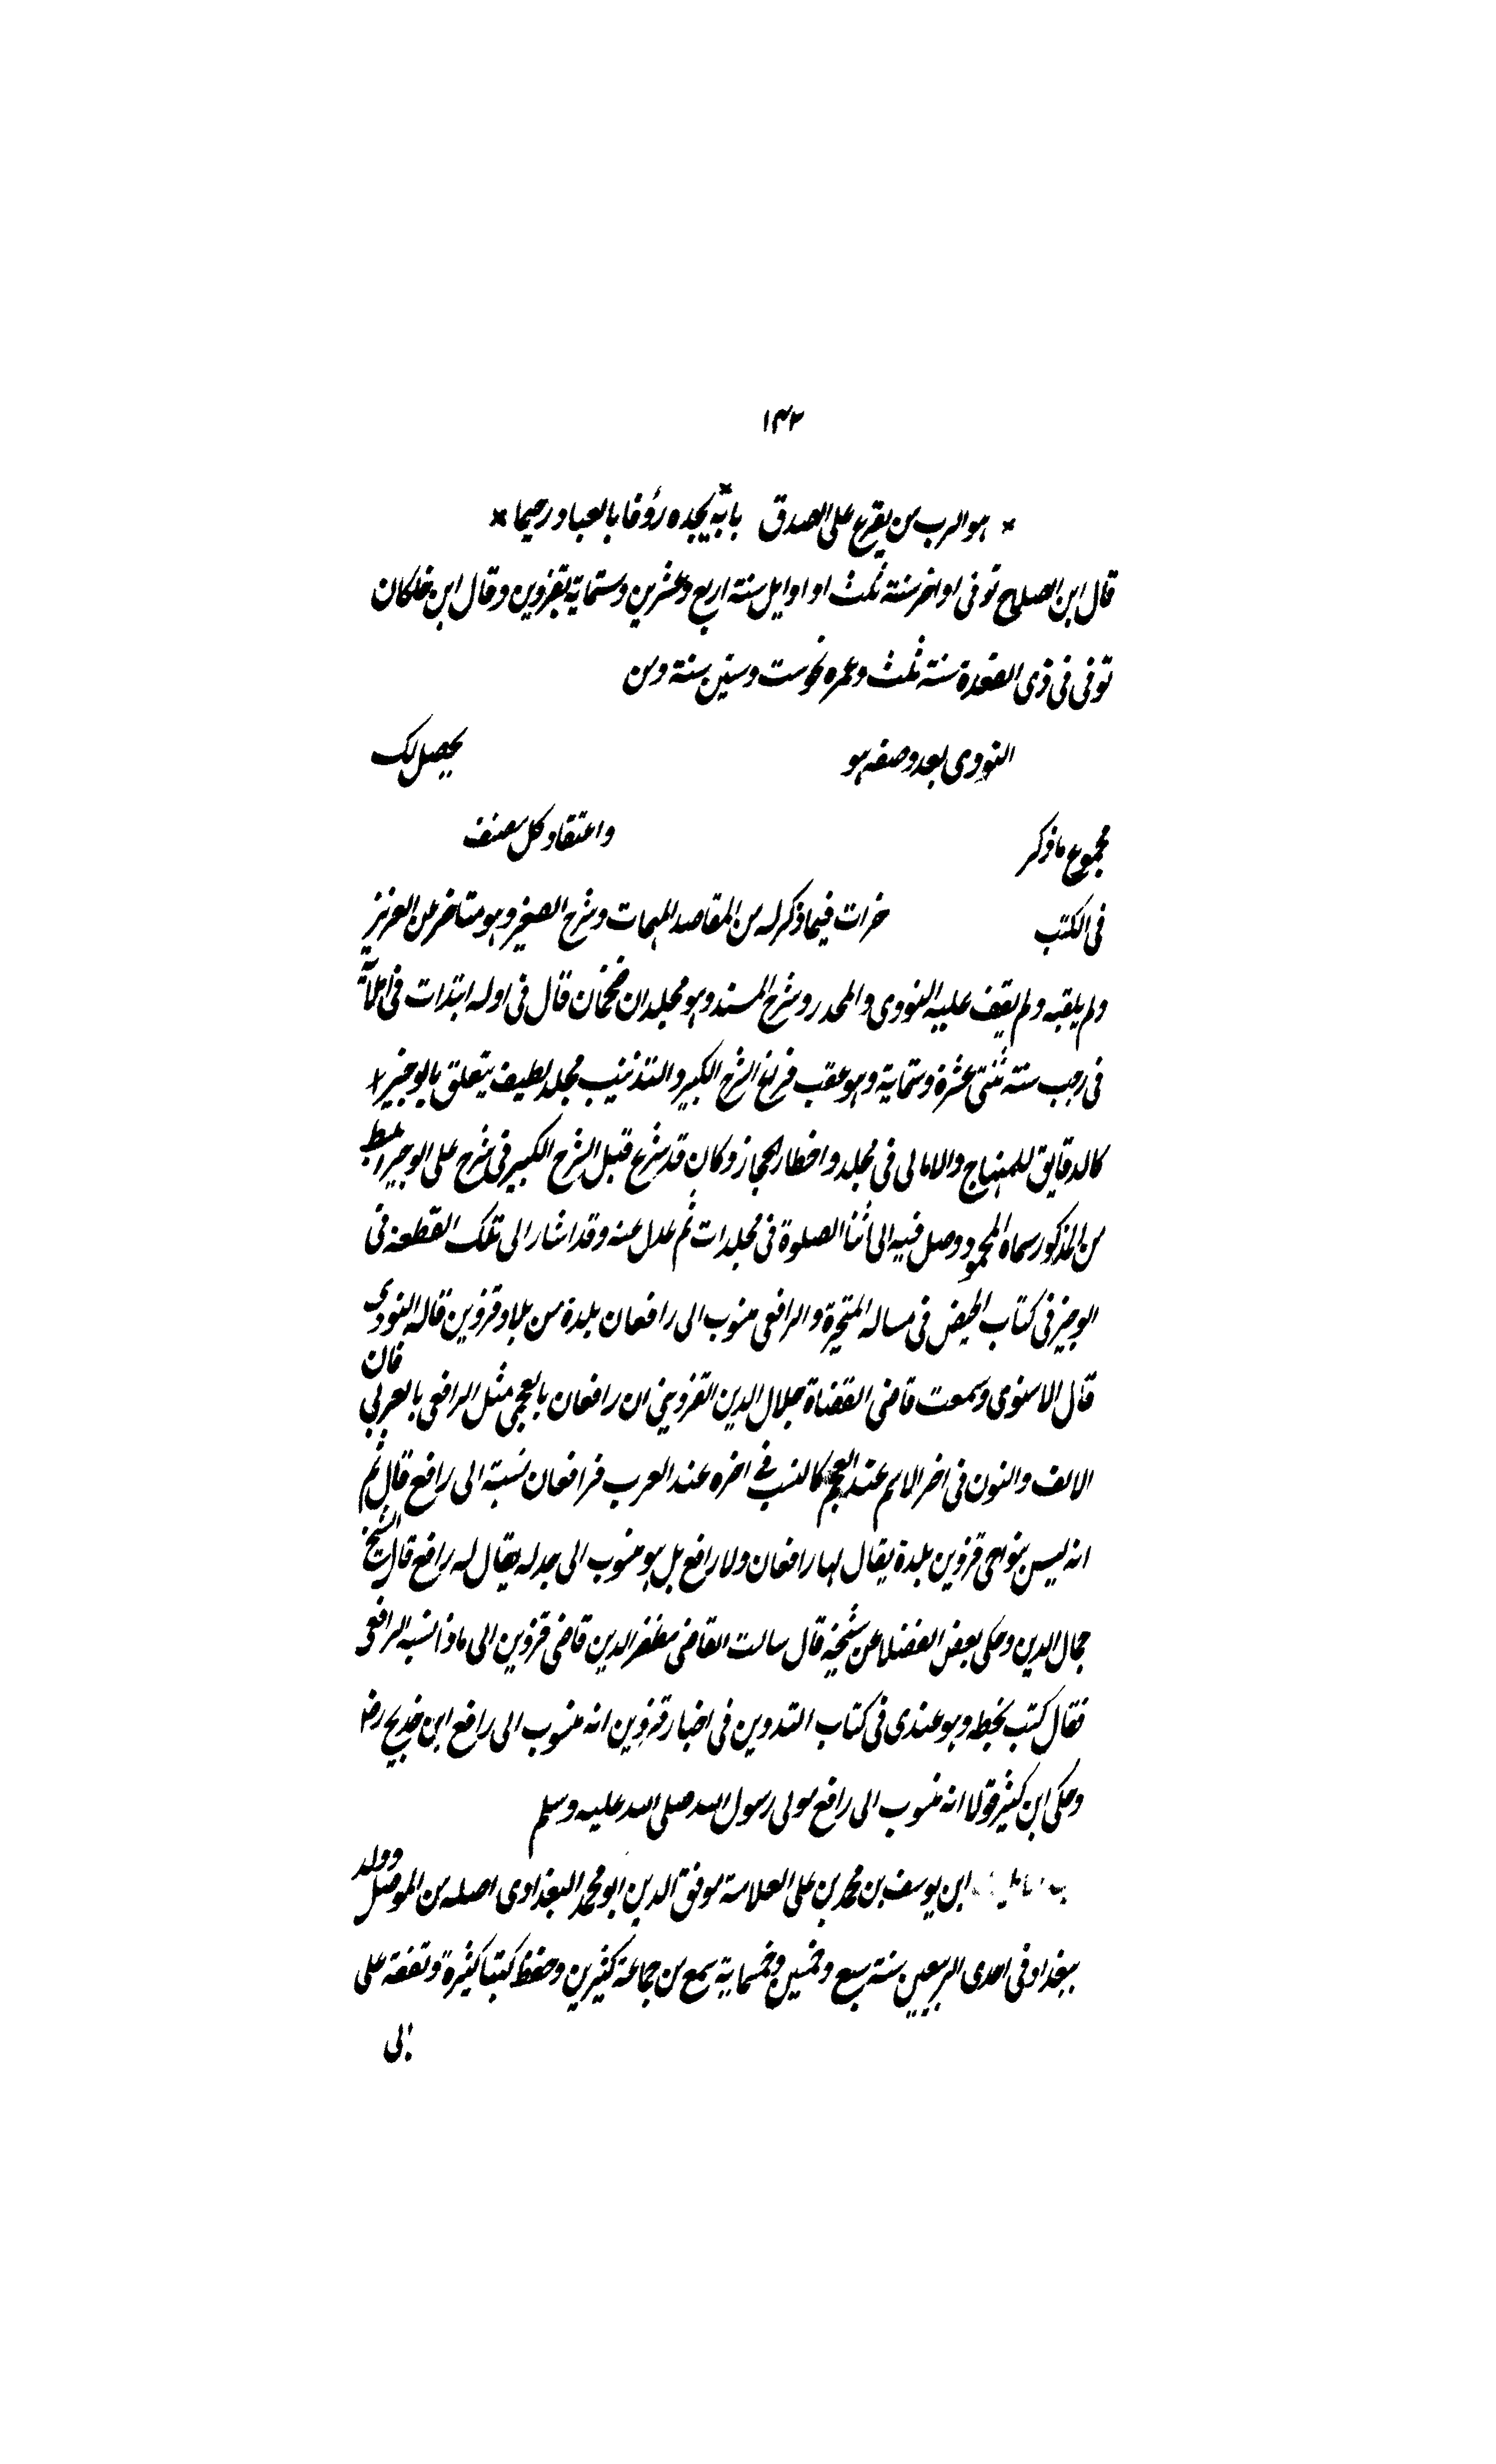 ١٣٢
* هو الرب من يقرع على الصدق بابه يجده رؤفا بالعباد رحيما *
قال ابن الصلاح توفى اواخر سنة ثلث او اوايل سنة اربع وعشرين وستماية بقزوين وقال ابن خلكان
توفى فى ذى القعدة سنة ثلث وعمره نحو ست وستين سنة ومن
النووى بعد وصفه هو يحصل لك
مجموع ما ذكر واعتقاد كل مصنف
فى الكتب خرات فيما ذكر له من المقاصد المهمات وشرح الصغير وهو متاخر عن العزيز
ولم يلقبه ولم يقف عليه النووى والمحرر وشرح المسند وهو مجلدان ضخمان قال فى اوله ابتدات فى املائه
فى رجب سنة ثنتى عشرة وستماية وهو عقب فراغ الشرح الكبير والتذنيب مجلد لطيف يتعلق بالوجيز
كالدقايق للمنهاج والامالى فى مجلد واخطار الحجاز وكان قد شرع قبل الشرح الكبير فى شرح على الوجيز ابسط
من المذكور سماه المحمود وصل فيه الى اثنا الصلوة فى مجلدات ثم عدل عنه وقد اشار الى تلك القطعة فى
الوجيز فى كتاب الحيض فى مساله المتحيرة والرافعى منسوب الى رافعان بلدة من بلاد قزوين قاله النووى
قال الاسنوى وسمعت قاضى القضاة جلال الدين القزوينى ان رافعان بالعجمى مثل الرافعى بالعربى فان
الالف والنون فى اخر الاسم عند العجم كالنسب فى اخره عند العرب فرافعان نسبة الى رافع قال ثم
انه ليس بنواحى قزوين بلدة يقال لها رافعان ولا رافع بل هو منسوب الى جد له يقال له رافع قال الشيخ
جمال الدين وحكى بعض الفضلا عن شيخه قال سالت القاضى مظفر الدين قاضى قزوين الى ماذا نسبه الرافعى
فقال كتب بخطه وهو عندى فى كتاب التدوين فى اخبار قزوين انه منسوب الى رافع ابن خديج رض
وحكى ابن كثير قولا انه منسوب الى رافع مولى رسول الله صلى الله عليه وسلم
ابن يوسف بن محمد بن على العلامة موفق الدين ابو محمد البغدادى اصله من الموصل وولد
ببغداد فى احدى الربيعين سنة سبع وخمسين وخمسماية سمع من جماعة كثيرين وحفظ كتبا كثيرة وتفقه على